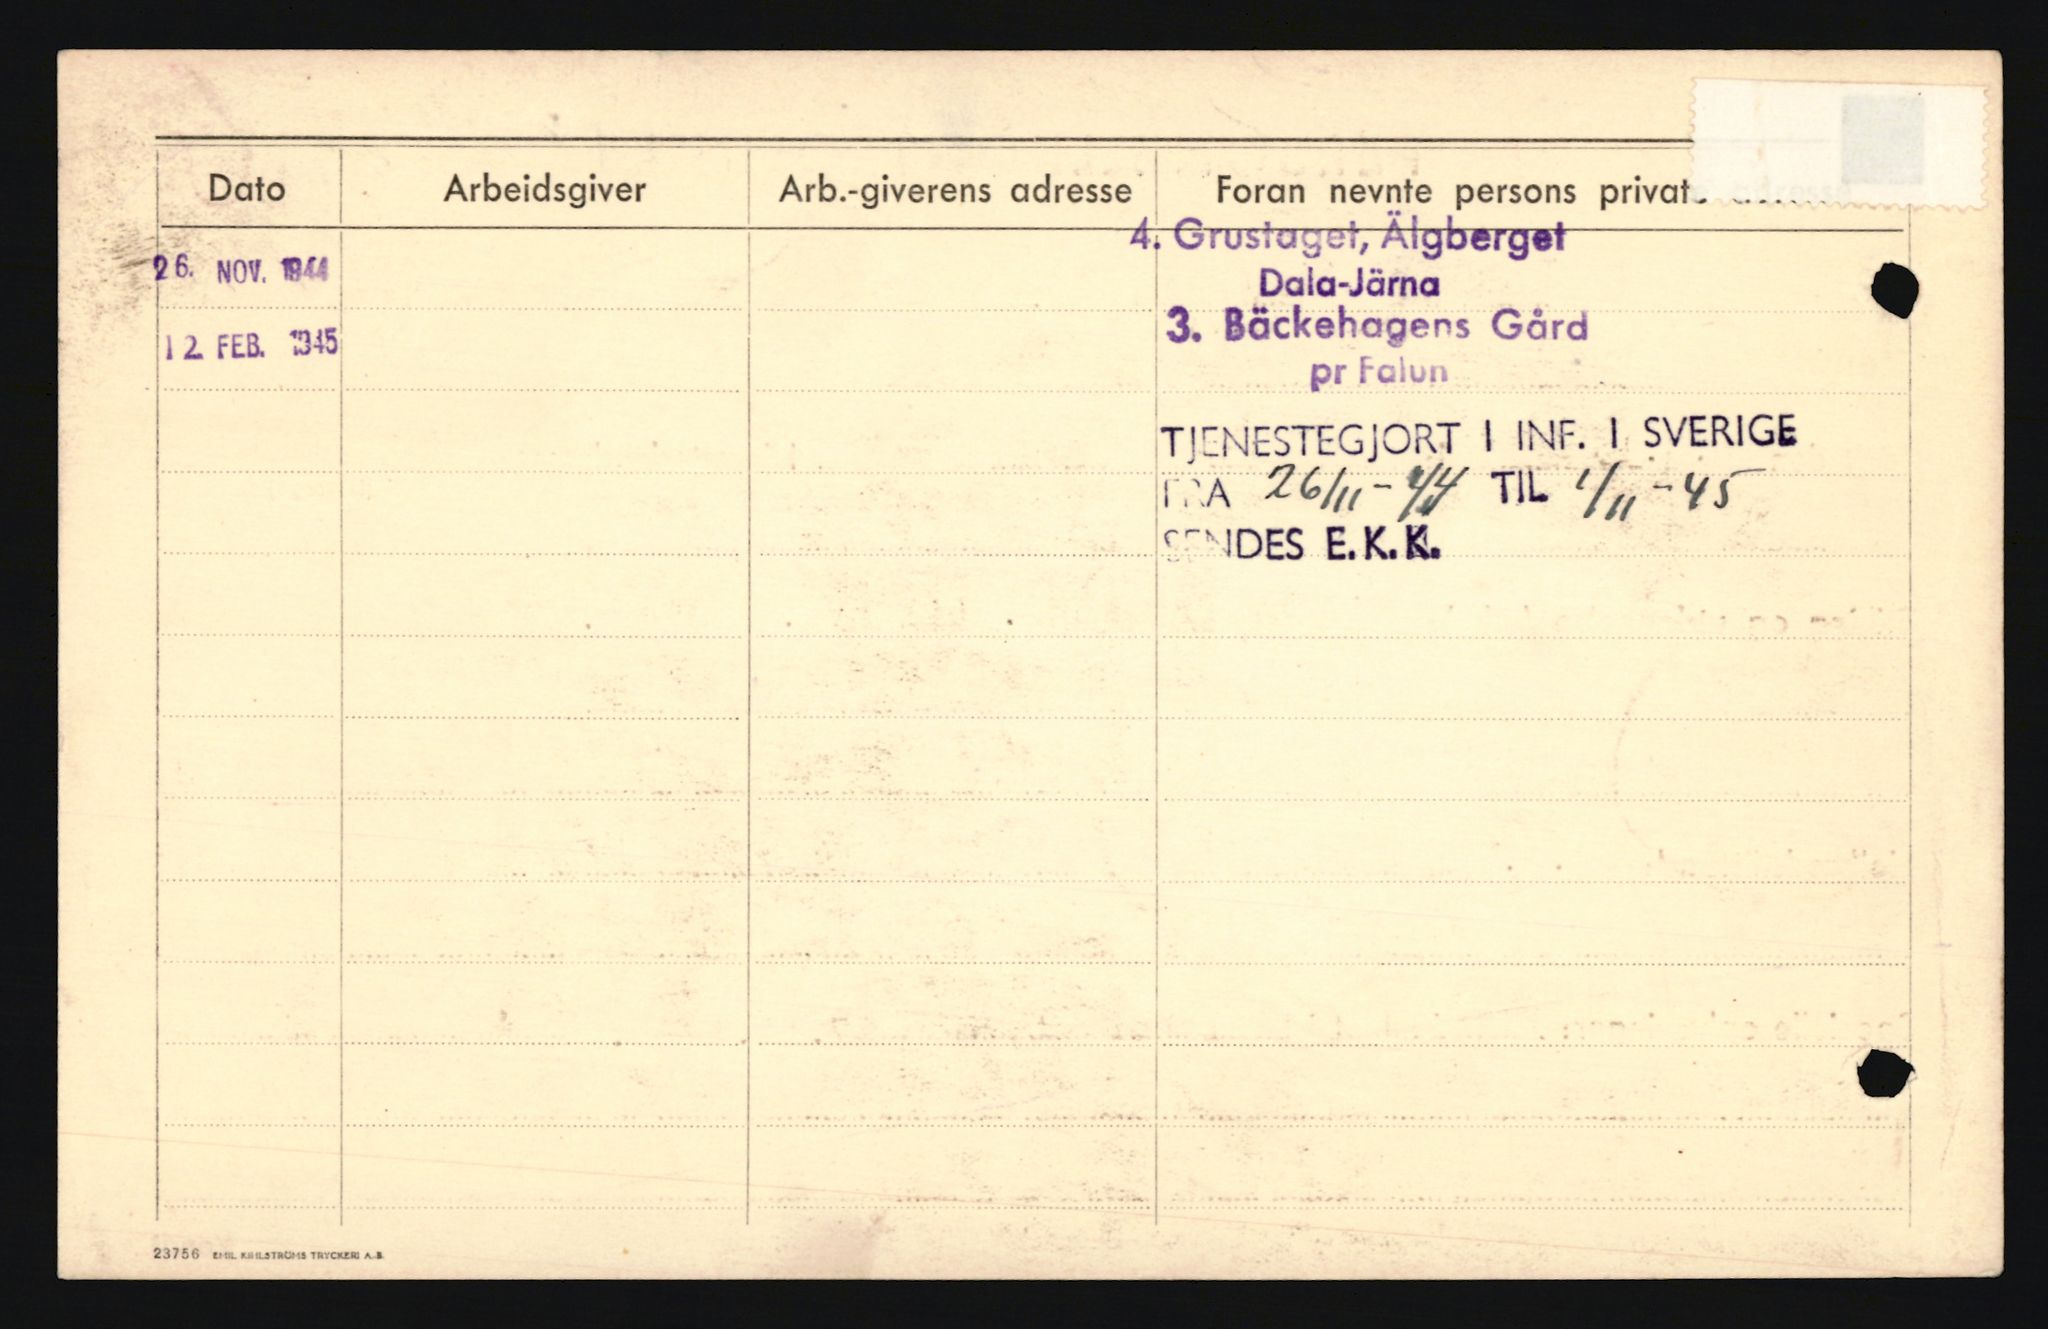 Dato Arbeidsgiver Arb.-giverens adresse Foran nevnte persons private adresse
4. Grustaget, Älgberget
26. NOV. 1944 Dala-Järna
3. Bäckehagens Gård
12. FEB. 1945
pr Falun
TJENESTEGJORT I INF. I SVERIGE
FRA 26/11-44 TIL 1/11-45
SENDES E.K.K.
23756 EMIL KIHLSTRÖMS TRYCKERI A.-B.